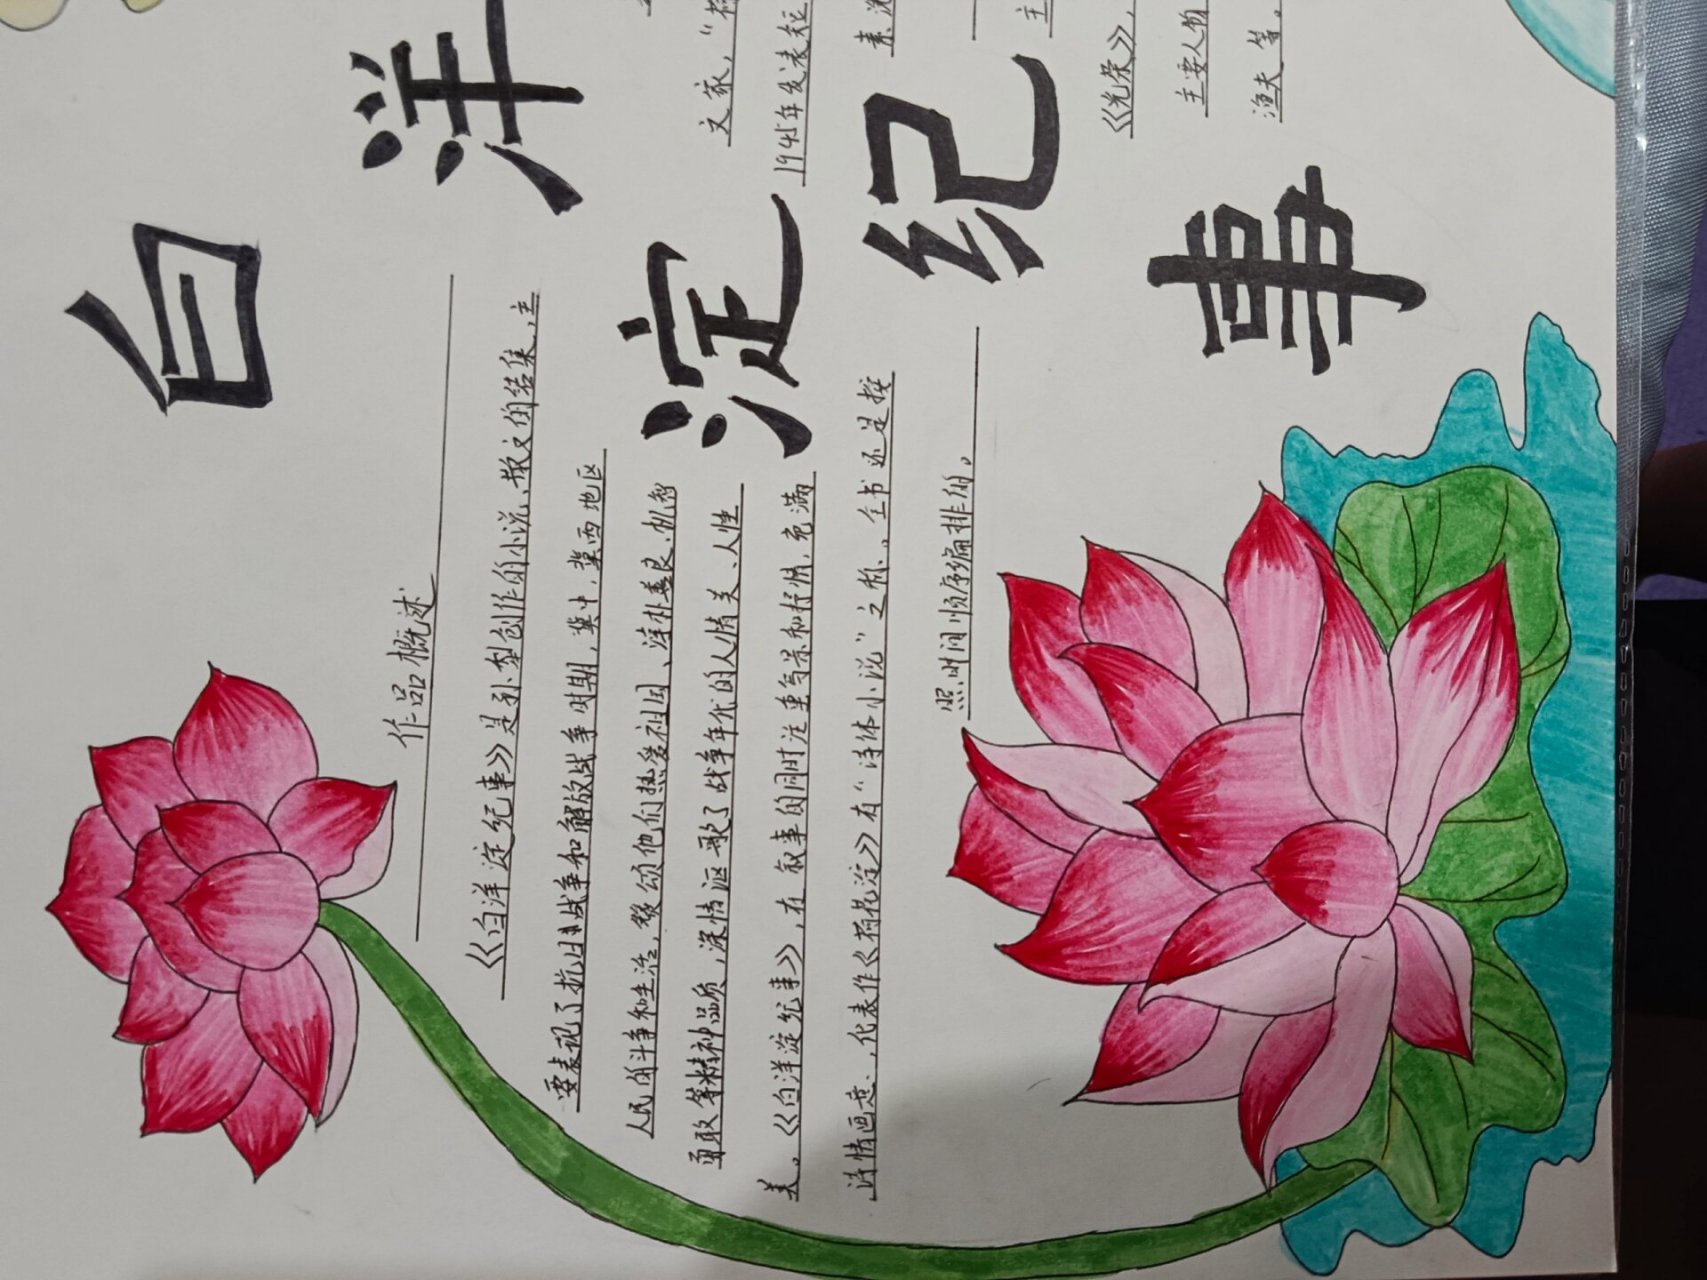 白洋淀纪事
作品概述
《白洋淀纪事》是孙犁创作的小说、散文的结集,主
要表现了抗日战争和解放战争时期,冀中,冀西地区
人民的斗争和生活,赞颂他们热爱祖国、淳朴善良、机智
勇敢等精神品质,深情讴歌了战争年代的人情美、人性
美。《白洋淀纪事》,在叙事的同时注重写景和抒情,充满
诗情画意、代表作《荷花淀》有“诗体小说”之称。全书还是按
照时间顺序编排的。
文家,“
1945年发表短
素
主
《光荣》,
主要人物
渔夫等。